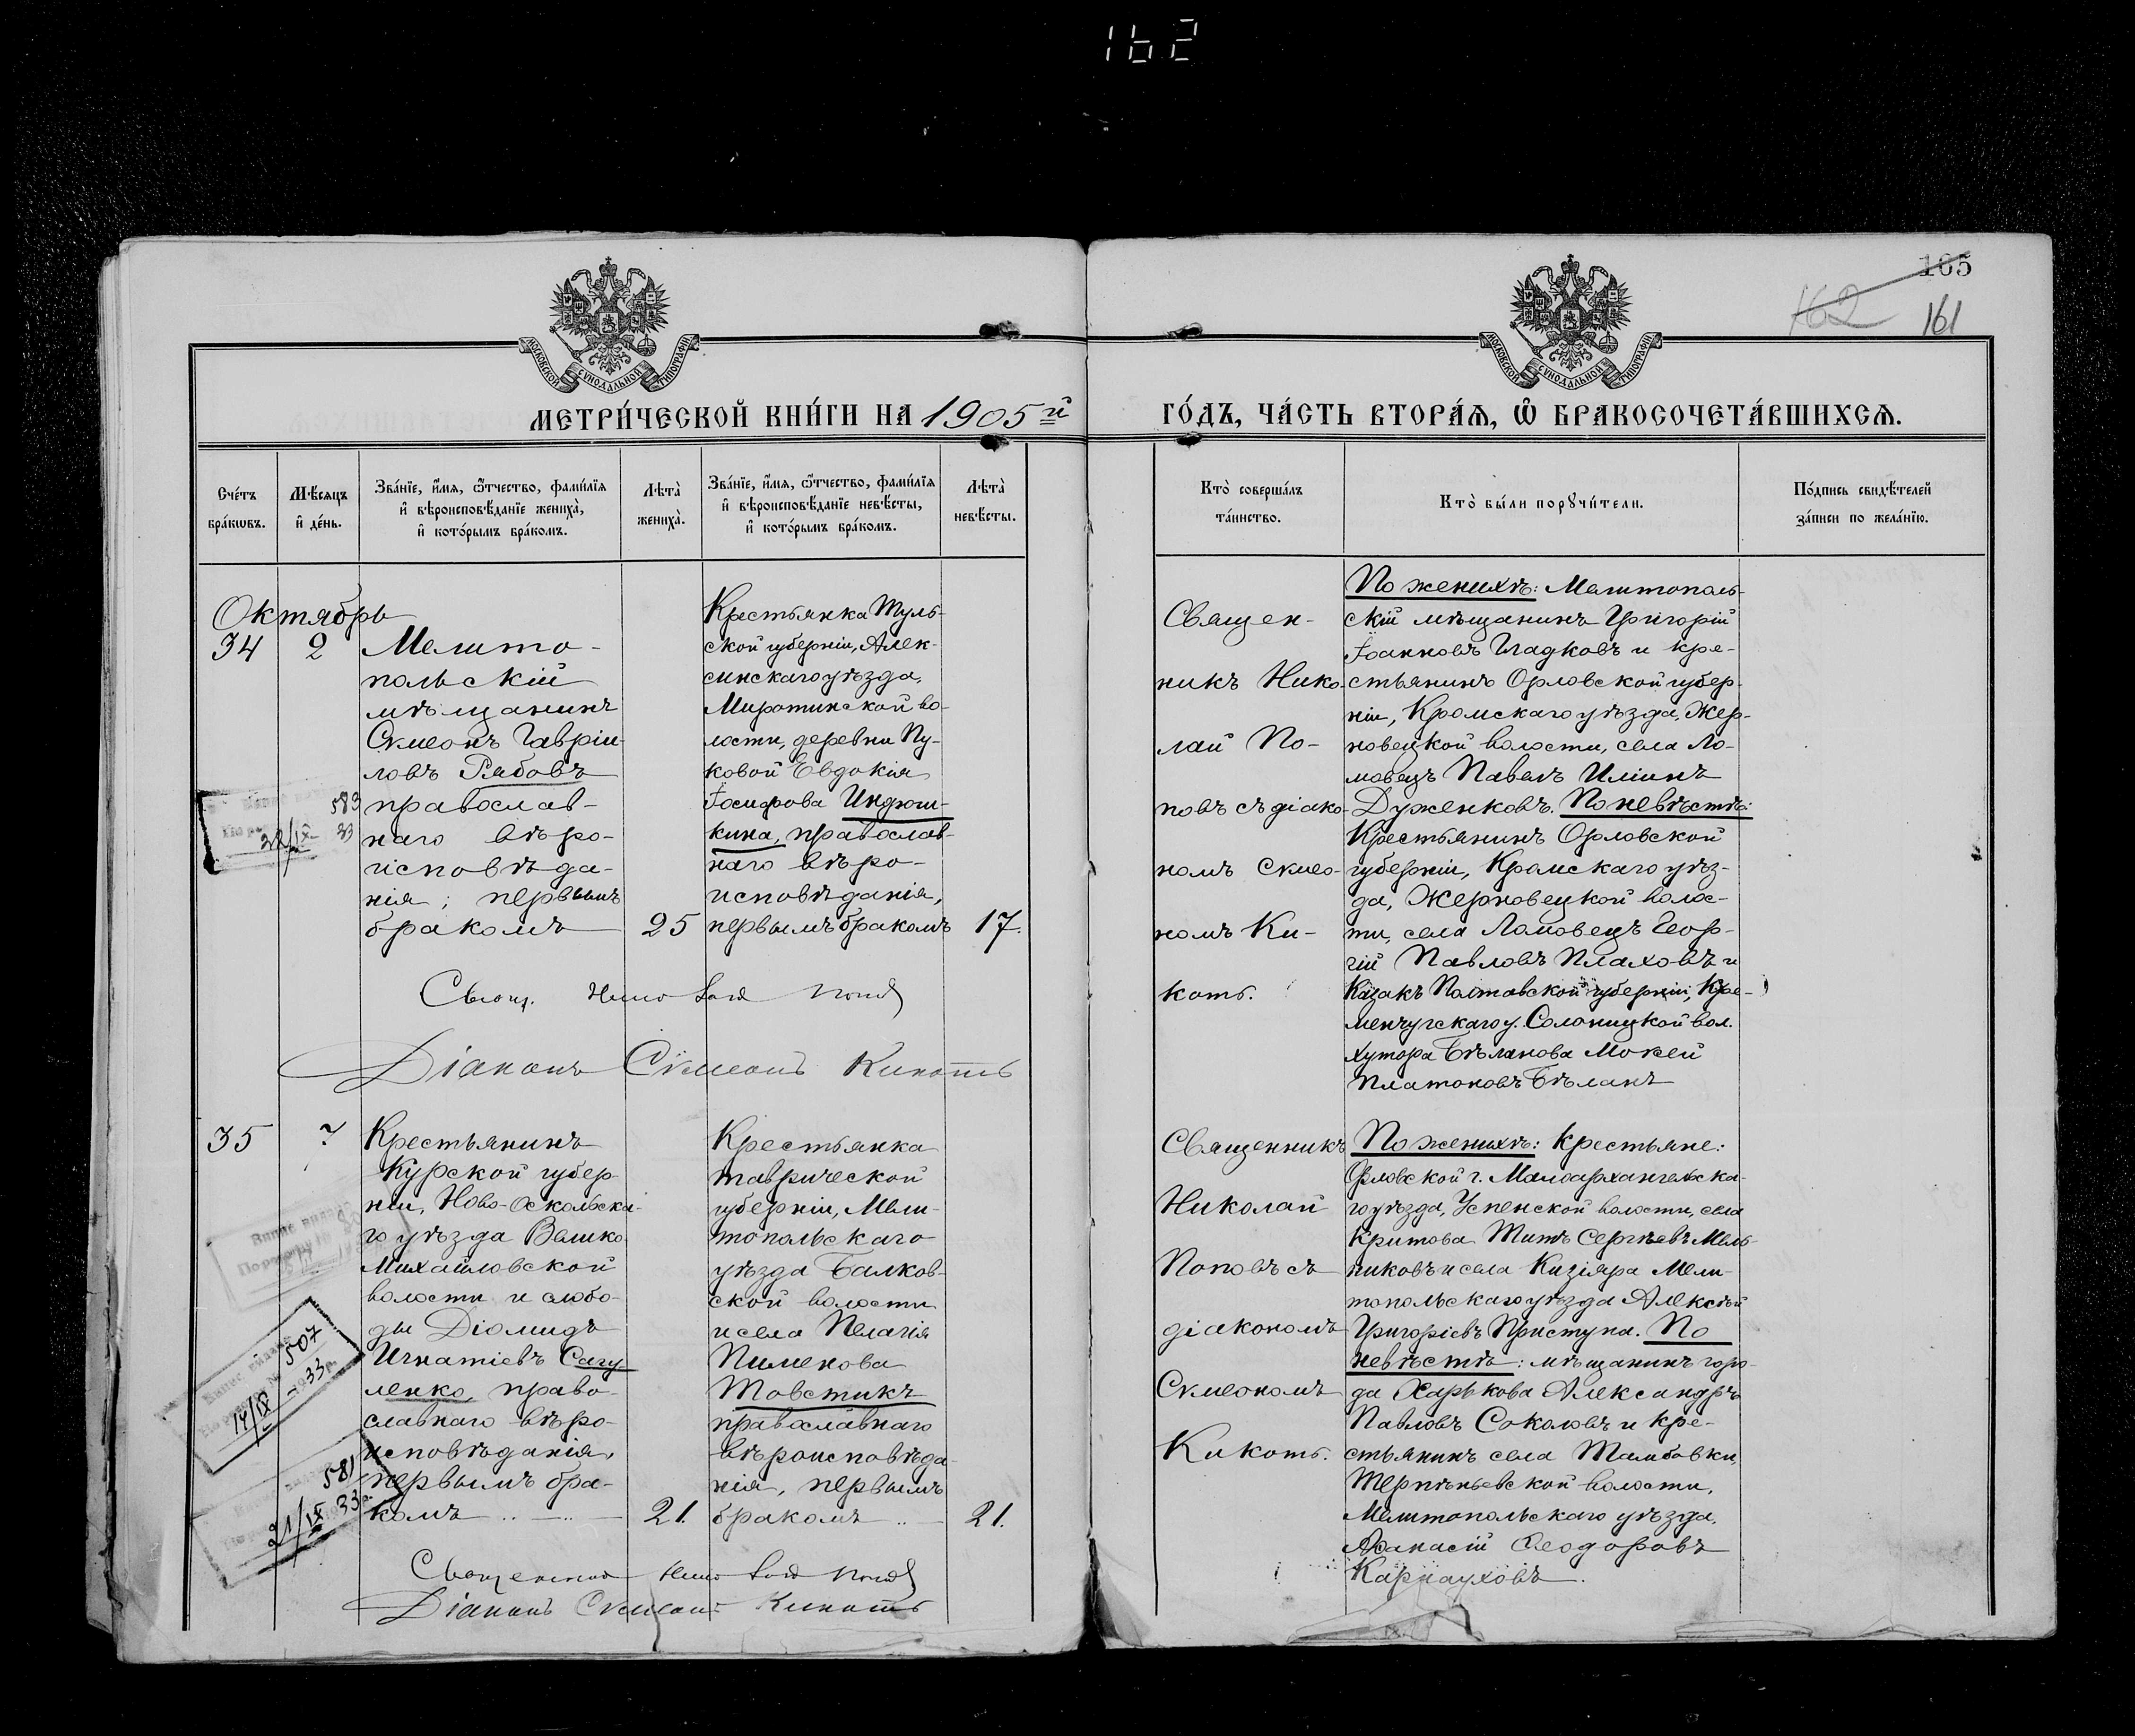 162
165
162
161
МОСКОВСКОЙ СУНОДАЛЬНОЙ ТИПОГРАФІИ
МОСКОВСКОЙ СУНОДАЛЬНОЙ ТИПОГРАФІИ
МЕТРИ́ЧЕСКОЙ КНИ́ГИ НА 1905й ГО́ДЪ, ЧА́СТЬ ВТОРА́Ѧ, Ѽ БРАКОСОЧЕТА́ВШИХСѦ.
Сче́тъ
бра́кѡвъ.
Мѣ́сяцъ
и҆ де́нь.
Зва́нїе, и҆́мя, ѻ҆́тчество, фами́лїя
и҆ вѣроисповѣ́данїе жениха̀,
и҆ кото́рымъ бра́комъ.
Лѣта̀
жениха̀.
Зва́нїе, и҆́мя, ѻ҆́тчество, фами́лїя
и҆ вѣроисповѣ́данїе невѣ́сты,
и҆ кото́рымъ бра́комъ.
Лѣта̀
невѣ́сты.
Кто̀ соверша́лъ
та́инство.
Кто̀ бы́ли порꙋчи́тели.
По́дпись свидѣ́телей
за́писи по жела́нїю.
Октябрь
34
2
Мелито-
польскій
мѣщанинъ
Сѵмеонъ Гавріи-
ловъ Рябовъ
православ-
наго вѣро-
исповѣда-
нія; первымъ
бракомъ
25
Крестьянка Туль-
ской губерніи, Алек-
синскаго уѣзда,
Миротинской во-
лости, деревни Пу-
ковой Евдокія
Іосифова Индюш-
кина, православ-
наго вѣро-
исповѣданія,
первымъ бракомъ
17.
Священ-
никъ Нико-
лай По-
повъ съ діако-
номъ Сѵмео-
номъ Ки-
коть.
По женихѣ: Мелитополь-
скій мѣщанинъ Григорій
Іоанновъ Гладковъ и кре-
стьянинъ Орловской губер-
ніи, Кромскаго уѣзда, Жер-
новецкой волости, села Ло-
мовецъ Павелъ Иліинъ
Друженковъ. По невѣстѣ:
Крестьянинъ Орловской
губерніи, Кромскаго уѣз-
да, Жерновецкой волос-
ти, села Ломовецъ Геор-
гій Павловъ Плаховъ и
Казакъ Полтавской губерніи, Кре-
менчугскаго у. Солоницкой вол.
хутора Бѣланова Мокей
Платоновъ Бѣланъ
583
22/IX 33
Свящ. Николай Поповъ
Діаконъ Сѵмеонъ Кикоть
35
?
Крестьянинъ
Курской губер-
ніи, Ново-Оскольска-
го уѣзда Велико
Михайловской
волости и слобо-
ды Діомидъ
Игнатіевъ Сагу
ленко, право-
славнаго вѣро-
исповѣданія,
первымъ бра-
комъ
21.
Крестьянка
таврической
губерніи, Мели-
топольскаго
уѣзда Балков-
ской волости
и села Пелагія
Пименова
Товстикъ
православнаго
вѣроисповѣда-
нія, первымъ
бракомъ
21.
Священникъ
Николай
Поповъ съ
діакономъ
Сѵмеономъ
Кикоть.
По женихѣ: Крестьяне:
Орловской г. Малоархангельска-
го уѣзда, Успенской волости, села
Критова Титъ Сергѣевъ Мель-
никовъ и села Кизіяра Мели-
топольскаго уѣзда Алексѣй
Григоріевъ Приступа. По
невѣстѣ: мѣщанинъ горо-
да Харькова Александръ
Павловъ Соколовъ и кре-
стьянинъ села Тамбовки,
Терпѣньевской волости,
Мелитопольскаго уѣзда,
Аѳанасій Ѳеодоровъ
Карнауховъ.
507
14/IX - 33 г.
581
21/IX 33 г.
Священникъ Николай Поповъ
Діаконъ Сѵмеонъ Кикоть